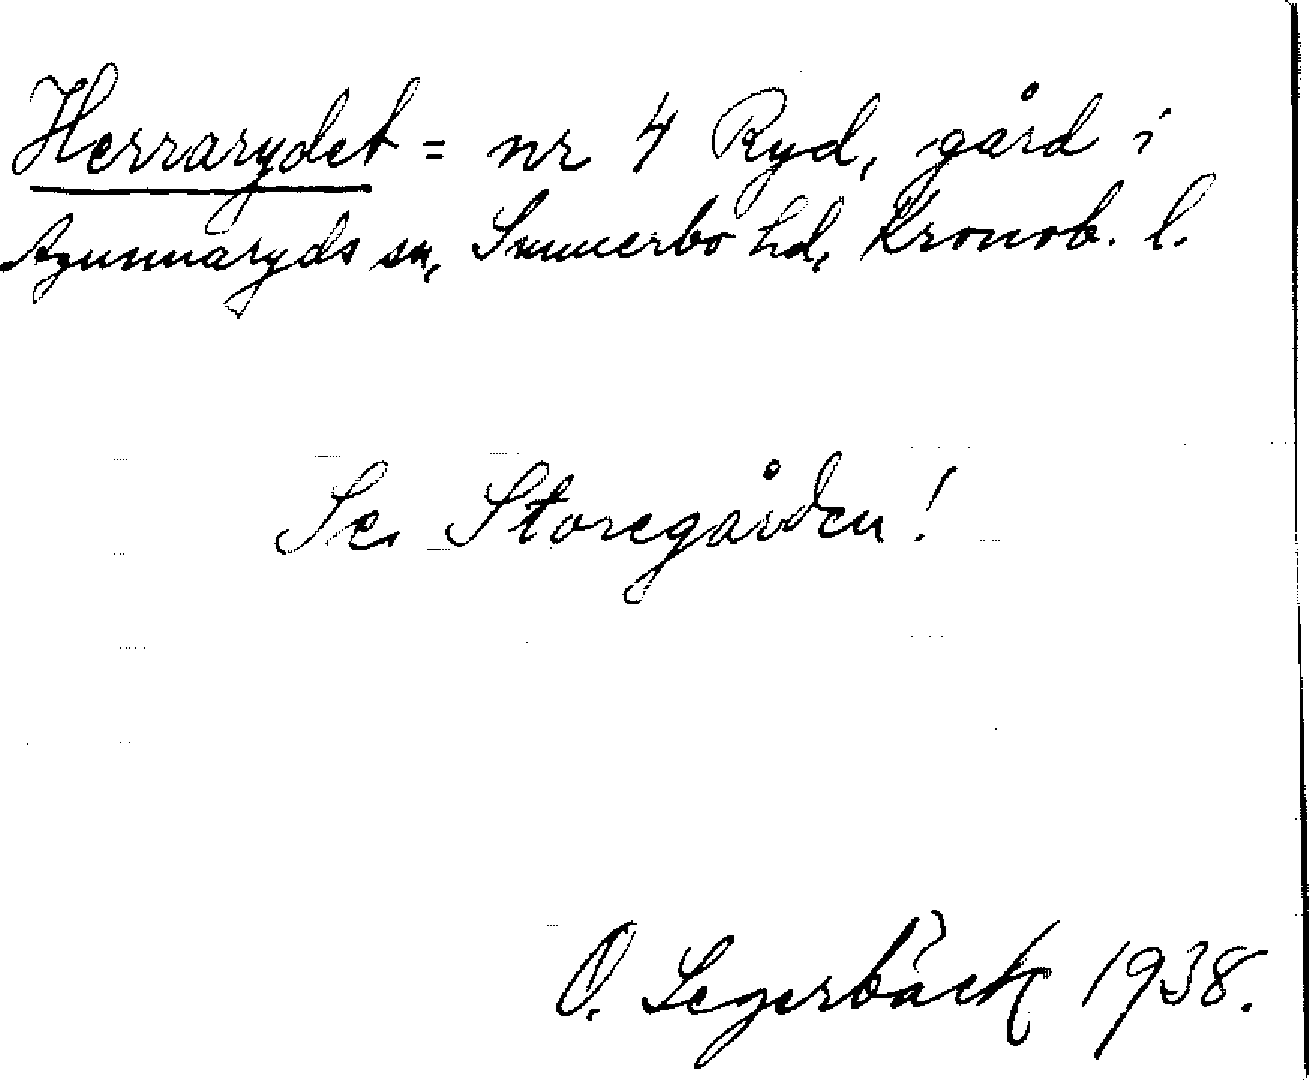 Herrarydet = nr 4 Ryd, gård i
Agunnaryds sn, Sunnerbo hd, Kronob. l.
Se Storegården!
O. Segerbäck 1938.